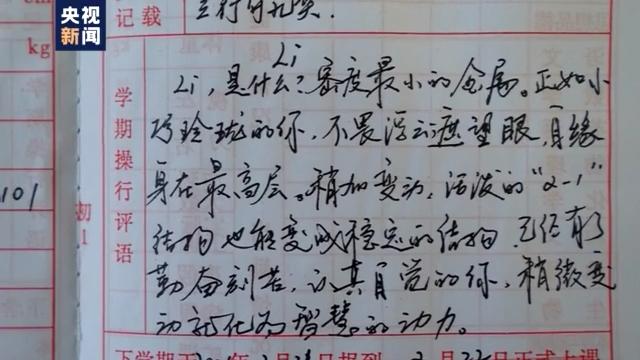 央视
新闻
cm
kg
101
初1
记载
学期操行评语
Li
Li，是什么？密度最小的金属。正如小
巧玲珑的你，不畏浮云遮望眼，自缘
身在最高层。稍加变动，活泼的“2-1”
结构也能变成稳定的结构，已经有了
勤奋刻苦，认真自觉的你，稍微变
动就化为智慧的动力。